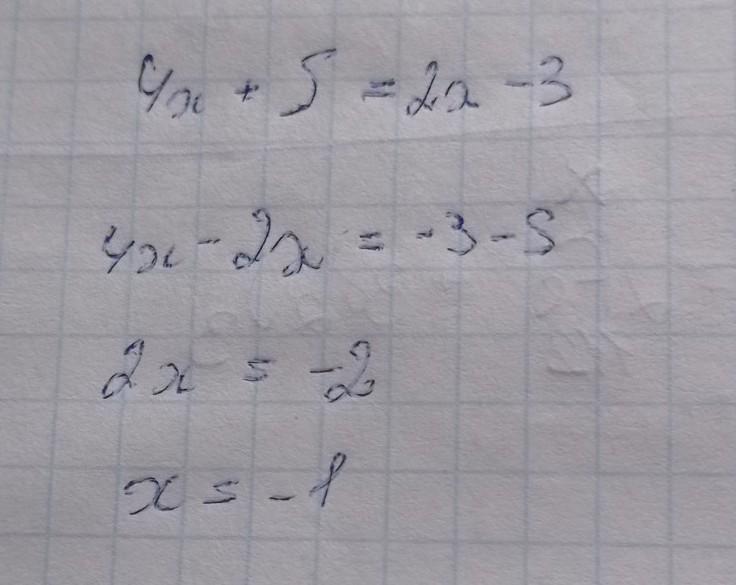 4x + 5 = 2x - 3
4x - 2x = -3 - 5
2x = -2
x = -1